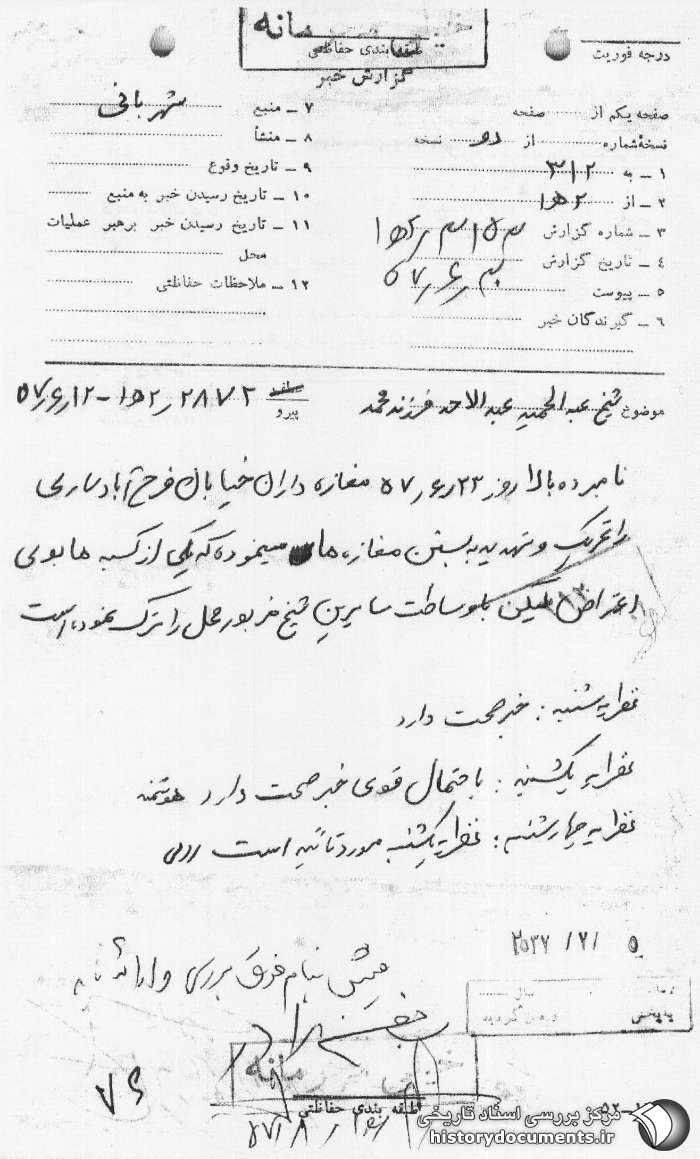 خیلی محرمانه
طبقه بندی حفاظتی
گزارش خبر
درجه فوریت
صفحه یکم از صفحه
نسخهٔ شماره از دو نسخه
۱ ـ به ۳۱۲
۲ ـ از ۱۵۲
۳ ـ شماره گزارش
۴ ـ تاریخ گزارش ۵۷٫۶٫۳۰
۵ ـ پیوست
۶ ـ گیرندگان خبر
۷ ـ منبع شهربانی
۸ ـ منشأ
۹ ـ تاریخ وقوع
۱۰ ـ تاریخ رسیدن خبر به منبع
۱۱ ـ تاریخ رسیدن خبر برهبر عملیات
محل
۱۲ ـ ملاحظات حفاظتی
موضوع شیخ عبدالحمید عبدالاحد فرزند محمد
پیرو ۲۸۷۲٫۱۵۲ - ۵۷٫۶٫۱۲
نامبرده بالا روز ۵۷٫۶٫۲۳ مغازه داران خیابان فرح آباد ساری
را تحریک و تهدید به بستن مغازه ها میموده که یکی از کسبه ها بوی
اعتراض لیکن با وساطت سایرین شیخ مزبور محل را ترک نموده است
نظریه شنبه : خبر صحت دارد
نظریه یکشنبه : باحتمال قوی خبر صحت دارد هوشمند
نظریه چهارشنبه : نظریه یکشنبه مورد تائید است
۲۵۳۷ /۷/ ۵
فیش بنام فوق بررسی و ارائه
سال
بایگانی
خیلی محرمانه
طبقه بندی حفاظتی
۷۶
مرکز بررسی اسناد تاریخی
historydocuments.ir